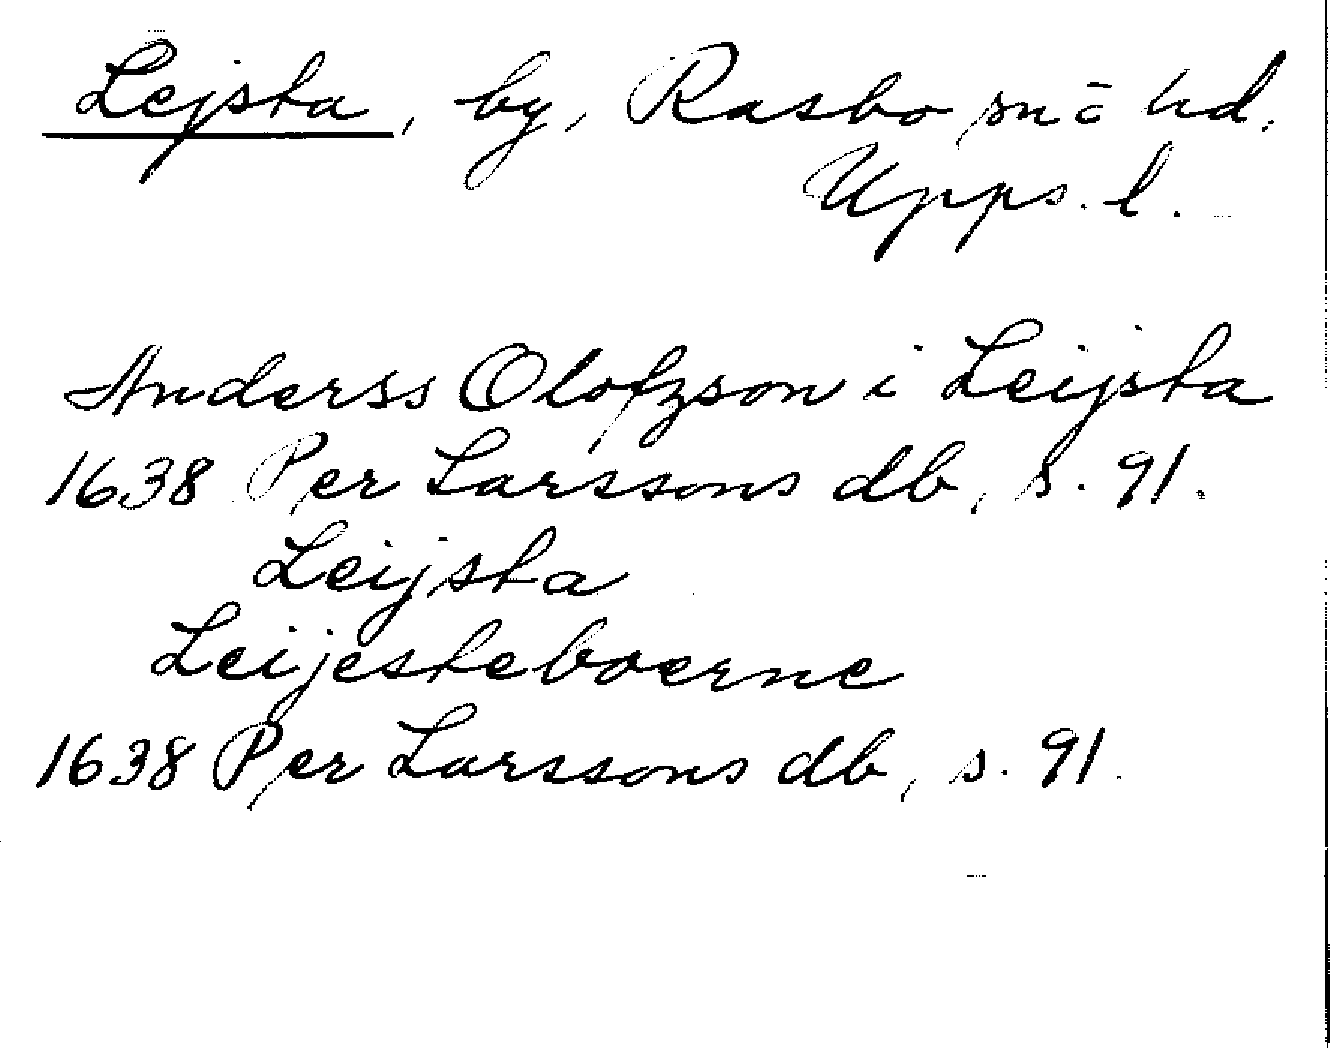 Lejsta, by, Rasbo sn o hd.
Upps. l.
Anderss Olofzson i Leijsta
1638 Per Larssons db, s. 91.
Leijsta
Leijesteboerne
1638 Per Larssons db, s. 91.